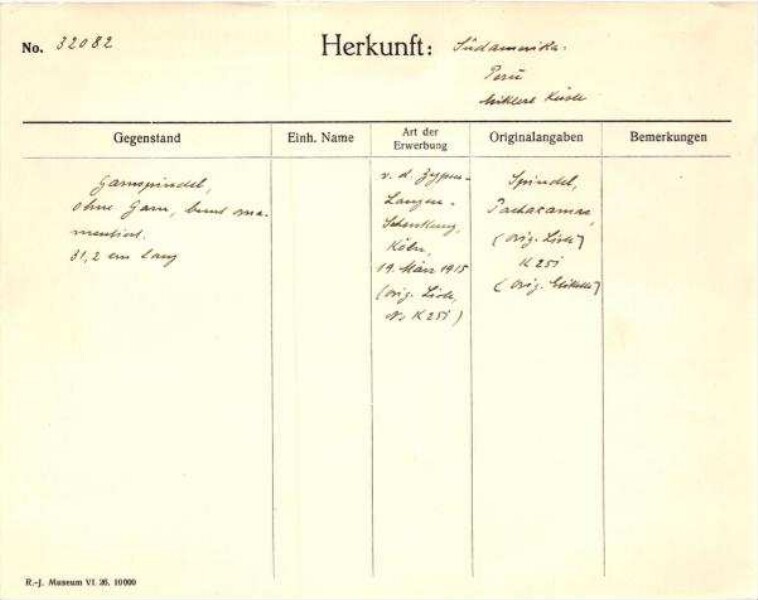 No. 32082
Herkunft: Südamerika.
Perú
Mittlere Küste
Gegenstand
Einh. Name
Art der
Erwerbung
Originalangaben
Bemerkungen
Garnspindel,
ohne Garn, bunt orna-
mentiert.
31,2 cm lang
v. d. Zypen-
Langen-
Schenkung,
Köln,
19. März 1915
(orig. Liste,
No K 25i)
Spindel,
Pachacamac,
(orig. Liste)
K 25i
(orig. Etikette)
R.-J. Museum VI. 26. 10000